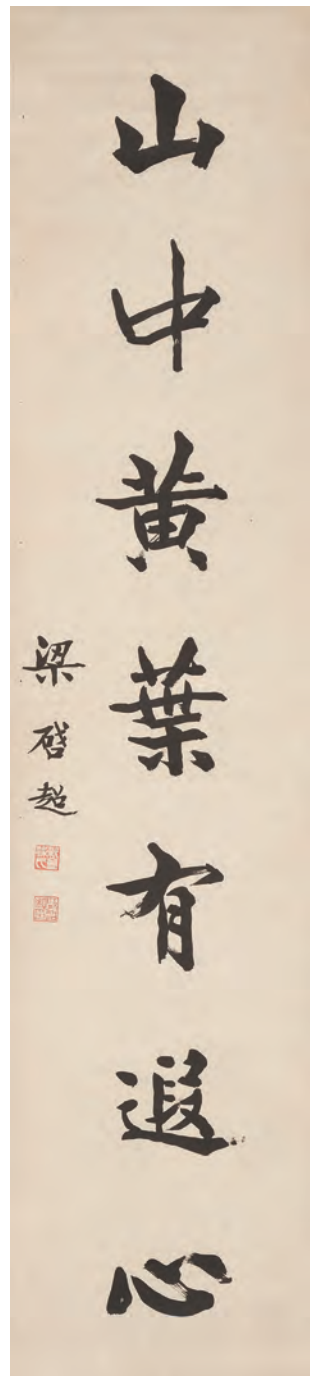 山中黄葉有遐心
梁啓超